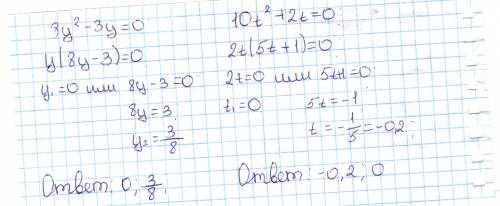 8y² - 3y = 0
y(8y - 3) = 0
y₁ = 0 или 8y - 3 = 0
8y = 3
y₂ = 3/8
Ответ: 0; 3/8.
10t² + 2t = 0
2t(5t + 1) = 0
2t = 0 или 5t+1 = 0
t₁ = 0 5t = -1
t = -1/5 = -0,2
Ответ: -0,2; 0